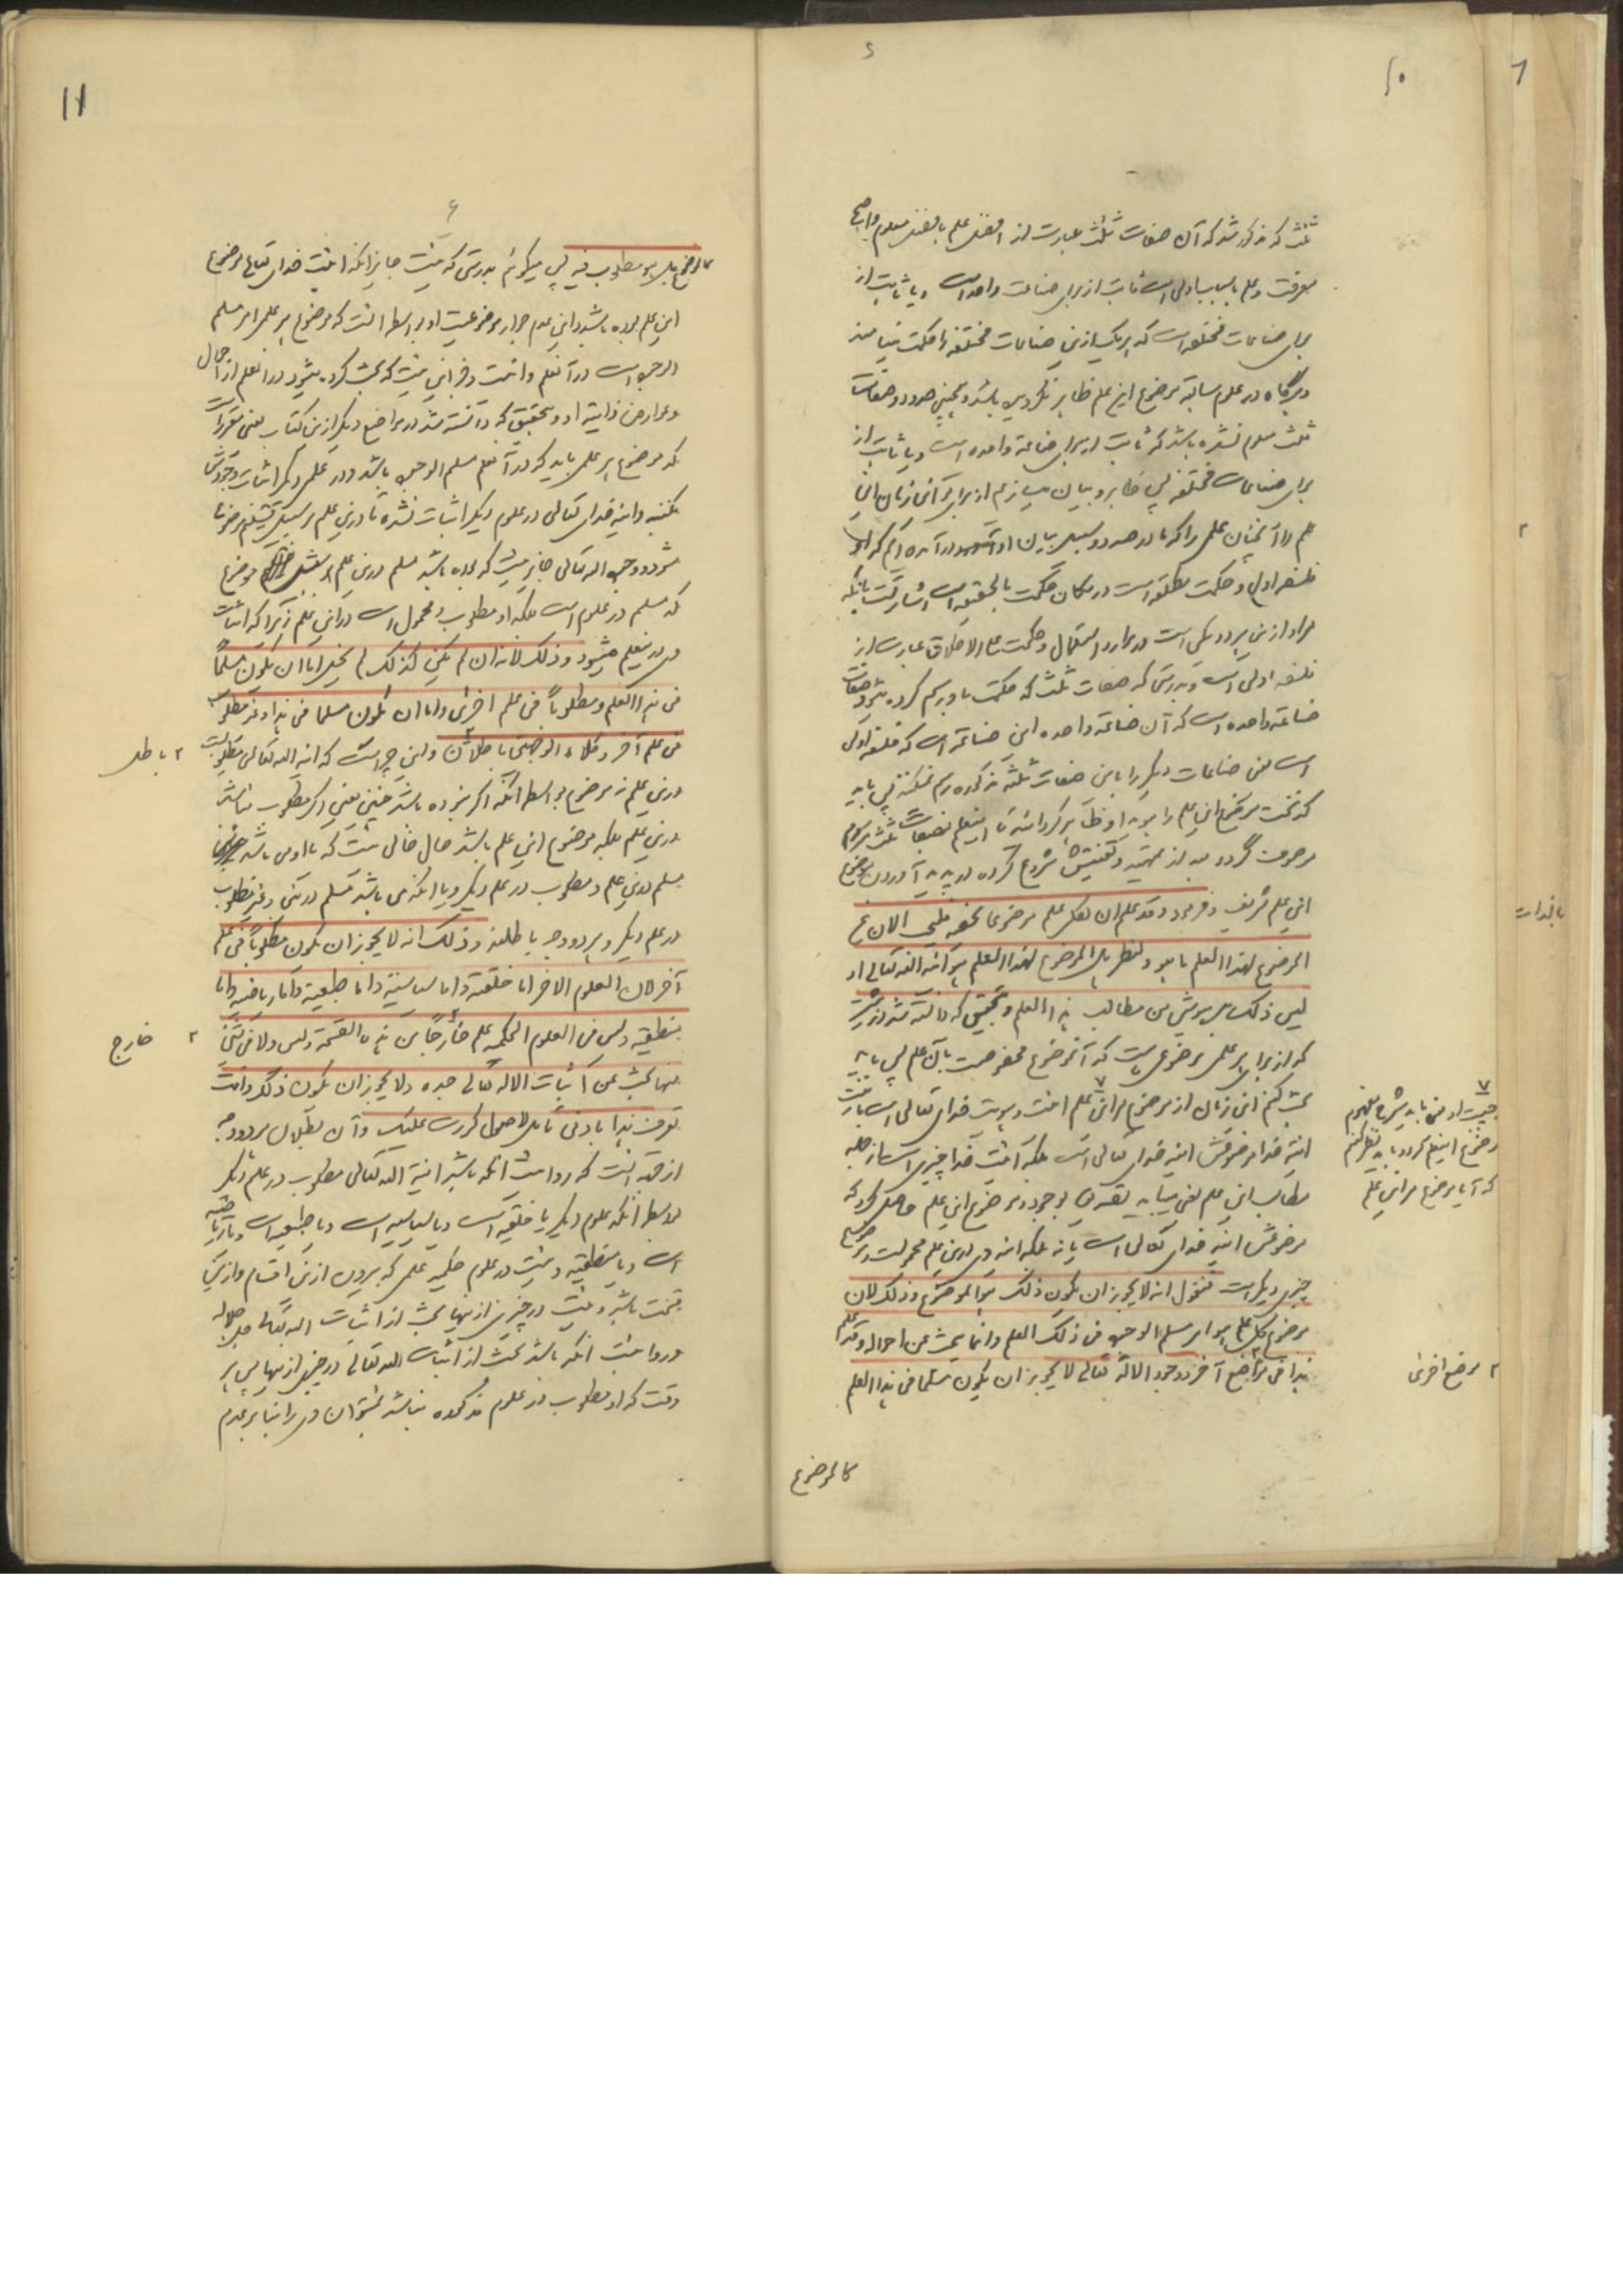 ثلث که مذکور شد که آن صفات ثلث عبارت از افضل علم بافضل معلوم واصح
معرفت وعلم باسباب اولی است ثابت از برای صناعت واحد است ویا ثابت از
برای صناعات مختلفه است که هر یک ازین صناعات مختلفه را حکمت مینامند
وهرگاه در علوم سابقه موضوع این علم ظاهر نگردیده باشد وهمچنین حدود وصفات
ثلث معلوم نشده باشد که ثابت از برای صناعة واحده است ویا ثابت از
برای صناعات مختلفه پس ظاهر وبیان میسازیم از برای تو آنی زمان این
علم را آنچنان علمی را که ما در صدد وسبیل بیان او در آمده ایم که او
فلسفه اولی وحکمت مطلقه است
مراد ازین هر دو یکی است در موارد استعمال وحکمت علی الاطلاق عبارت از
فلسفه اولی است وبدرستی که صفات ثلث که حکمت باو رسم کرده میشود صفات
صناعة واحده است که آن صناعة واحده این صناعة است که فلسفه اولی
است یعنی صناعات دیگر را باین صفات ثلثه مذکوره رسم نمیکنند پس باید
که نخست موضوع این علم را بوی او ظاهر کرد انید تا اینعلم بصفات ثلث مرسوم
وموصوف گردد بعد از تمهید وتفتیش شروع کرده در پدید آوردن موضوع
این علم شریف وفرمود وقد علم ان لکل علم موضوعا یخصه فلنبحث الان عن
الموضوع لهذا العلم ما هو ولننظر هل الموضوع لهذا العلم هو انیة الله تعالی او
لیس ذلک بل هو شئ من مطالب هذا العلم وبتحقیق که دانسته شد ازین پیش
که از برای هر علمی موضوعی است که آنموضوع مخصوص است بآن علم پس باید
بحث کنیم این زمان از موضوع مراین علم
انیة خدا موضوعش انیة خدای تعالی است بلکه انیت خدا چیزی است از جمله
مطالب این علم یعنی میباید تصدیق بوجود موضوع این علم حاصل کرد که
موضوعش انیة خدای تعالی است یا نه بلکه انیة وی درین علم محمولست وموضوع
چیزی دیگر است فنقول انه لا یجوز ان یکون ذلک هو الموضوع وذلک لان
موضوع کل علم هو امر مسلم الوجود فی ذلک العلم وانما یبحث عن احواله وقد علم
هذا فی مواضع آخر ووجود الاله تعالی لا یجوز ان یکون مسلما فی هذا العلم
کالموضوع
چیست او
وموضوع اینعلم کردد باید نظر کنیم
که آیا موضوع مراین علم
۲ موضع اخری
کالموضوع بل هو مطلوب فیه پس میگوئیم بدرستی که نیست جایز انکه انیت خدای تعالی موضوع
این علم بوده باشد واین عدم جواز موضوعیت او بواسطه انست که موضوع هر علمی امر مسلم
الوجود است در آنعلم وانست وجز این نیست که بحث کرده میشود در انعلم از احوال
وعوارض ذاتیه او وبتحقیق که دانسته شد در مواضع دیگر ازین کتاب یعنی مقررات
که موضوع هر علمی باید که در آنعلم مسلم الوجود باشد ودر علمی دیگر اثبات وجودش
بکنند وانیة خدای تعالی در علوم دیگر اثبات نشده تا درین علم بر سبیل تسلیم موضوع
شود ووجود اله تعالی جایز نیست که بوده باشد مسلم درین علم موضوع
که مسلم در علوم است بلکه او مطلوب ومحمول است دراین علم زیرا که اثبات
وی در اینعلم میشود وذلک لانه ان لم یکن کذلک لم یخل اما ان یکون مسلماً
فی هذا العلم ومطلوباً فی علم اخری واما ان یکون مسلما فی هذا وغیر مطلوب
فی علم آخر وکلاء الوجهین باطلان واین چیزاست که انیة الله تعالی مطلوبست
درین علم نه موضوع بواسطه آنکه اگر نبوده باشد چنین یعنی اگر مطلوب نباشد
درین علم بلکه موضوع این علم باشد حال خالی نیست که یا او می باشد
مسلم درین علم ومطلوب در علم دیگر ویا انکه می باشد مسلم درین وغیر مطلوب
در علم دیگر وهر دو وجه باطلند وذلک انه لا یجوز ان یکون مطلوباً فی علم
آخر لان العلوم الاخر اما خلقیة واما سیاسیة واما طبیعیة واما ریاضیة واما
منطقیه ولیس فی العلوم الحکمیه علم خارجاً من هذه القسمة ولیس ولا فی شئ
منها یبحث عن اثبات الاله تعالی جده ولا یجوز ان یکون ذلک وانت
تعرف هذا بادنی تأمل لاصول کررت علیک وآن بطلان هر دو وجه
از جهة انست که روا نیست انکه باشد انیة الله تعالی مطلوب در علم دیگر
بواسطه انکه علوم دیگر یا خلقیه است ویا سیاسیه است ویا طبیعیه است ویا ریاضیه
است ویا منطقیه ونیست در علوم حکمیه علمی که بیرون ازین اقسام وازین
قسمت باشد ونیست در چیزی ازینها بحث از اثبات اله تعالی جل جلاله
وروا نیست انکه باشد بحث از اثبات الله تعالی در چیزی ازینها پس هر
وقت که او مطلوب در علوم مذکوره نباشد نمیتوان وی را بنابر عدم
۲ باطل
۲ خارج